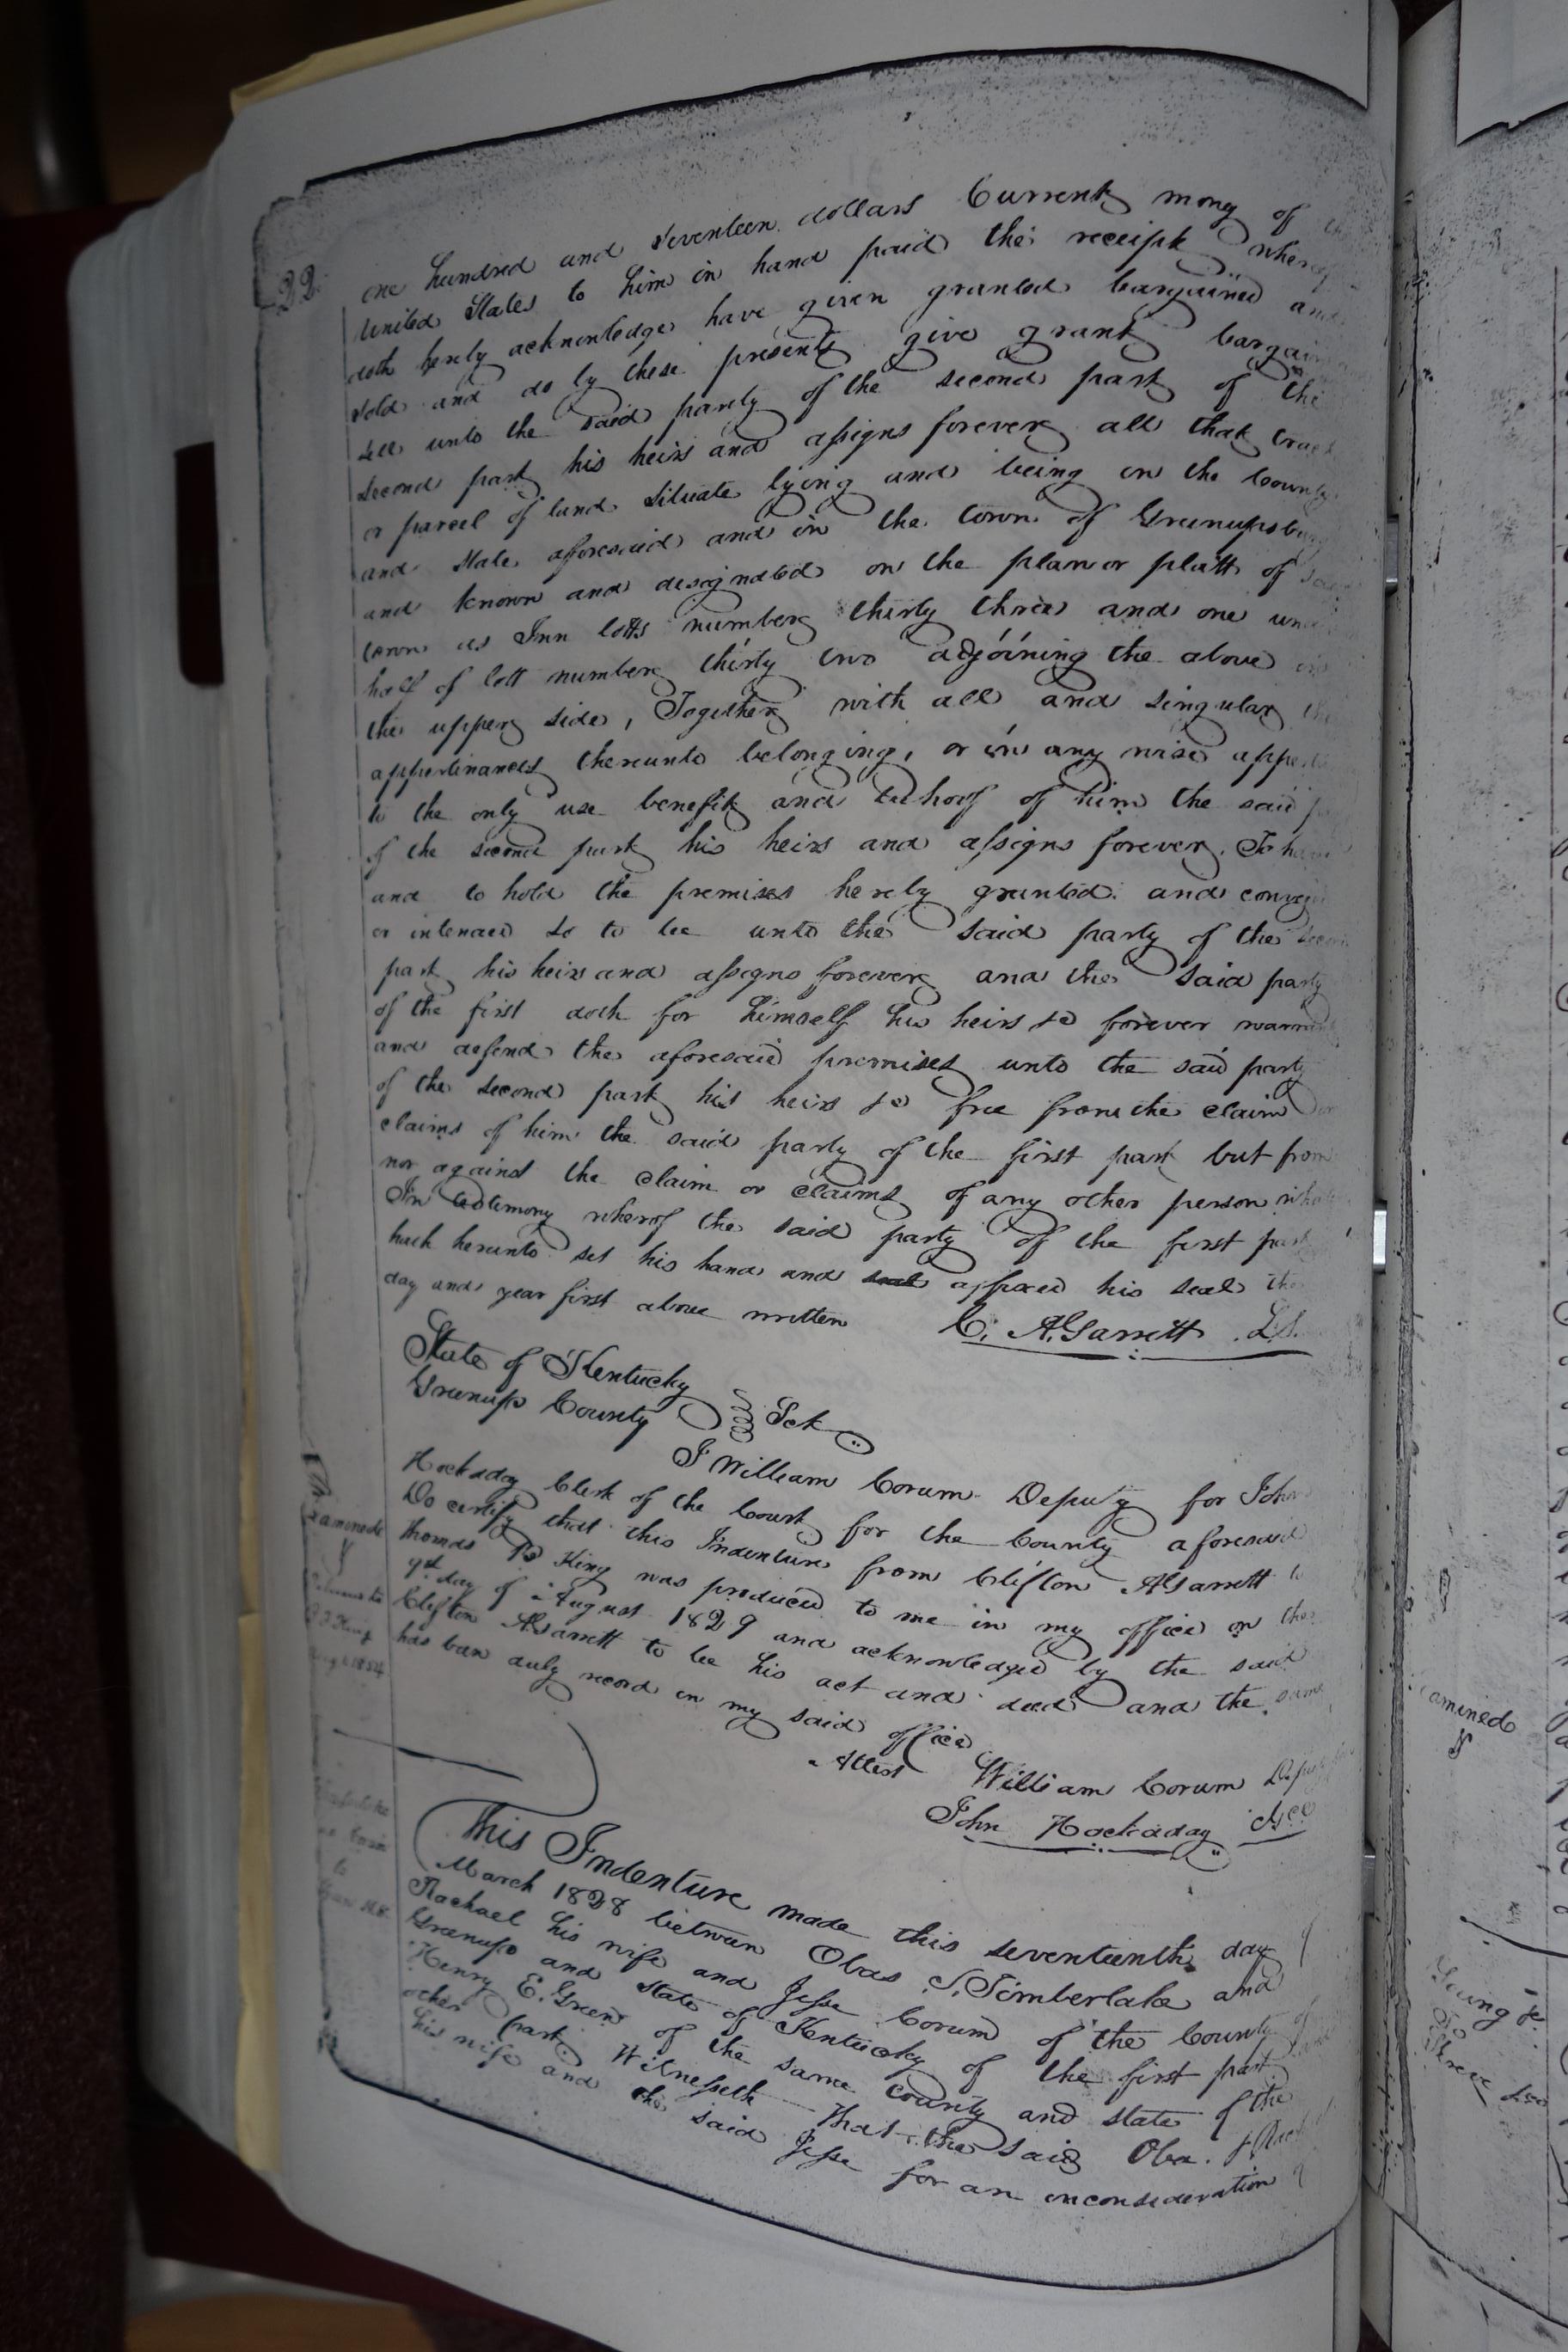 22
one hundred and seventeen dollars Current money of
United States to him in hand paid the receipt
doth herely acknowledge have given granted bargained and
sold and do by these presents give grant bargain
sell unto the said party of the second part of the
second part his heirs and assigns forever all that tract
or parcel of land situate lying and being in the County
and State aforesaid and in the town of Greenupsburg
and known and designated on the plan or platt of
town as Inn lotts number thirty three and one
half of lott number thirty two adjoining the above
the upper side, Together with all and singular the
appertinances thereunto belonging, or in any wise
to the only use benefit and behoof of him the said
of the second part his heirs and assigns forever. To have
and to hold the premises herely granted and
or intended so to be unto the said party of the
part his heirs and assigns forever and the said party
of the first doth for himself his heirs &c forever warrant
and defend the aforesaid premises unto the said party
of the second part his heirs &c free from the claim or
claims of him the said party of the first part but from
nor against the claim or claims of any other person
In testimony wherof the said party of the first part
hath herunto set his hand and seal affixed his seal the
day and year first above written C. A. Garrett L.S.
State of Kentucky
Greenup County Sct
I William Corum Deputy for John
Hockaday Clerk of the Court for the County aforesaid
Do certify that this Indenture from Clifton A Garrett to
Thomas B King was produced to me in my office on the
day of August 1829 and acknowledged by the said
Clifton A Garrett to be his act and deed and the same
has been duly record in my said office
Attest William Corum
John Hockaday
Examined
This Indenture made this seventeenth day
March 1828 between Obas S. Timberlake and
Rachael his wife and Jesse Corum of the County of
Greenup and State of Kentucky of the first part
Henry E. Green of the same county and state of the
other part Witnesseth That the said Oba.
his wife and the said Jesse for an inconsideration
amined